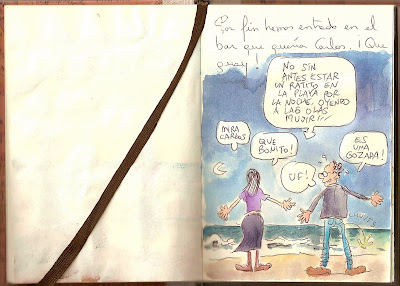 Por fin hemos entrado en el
bar que quería Carlos. ¡Que
guay...
NO SIN
ANTES ESTAR
UN RATITO EN
LA PLAYA POR
LA NOCHE, OYENDO
A LAS OLAS
MUJIR///
MIRA
CARLOS
QUE
BONITO!
UF!
ES
UNA
GOZADA!